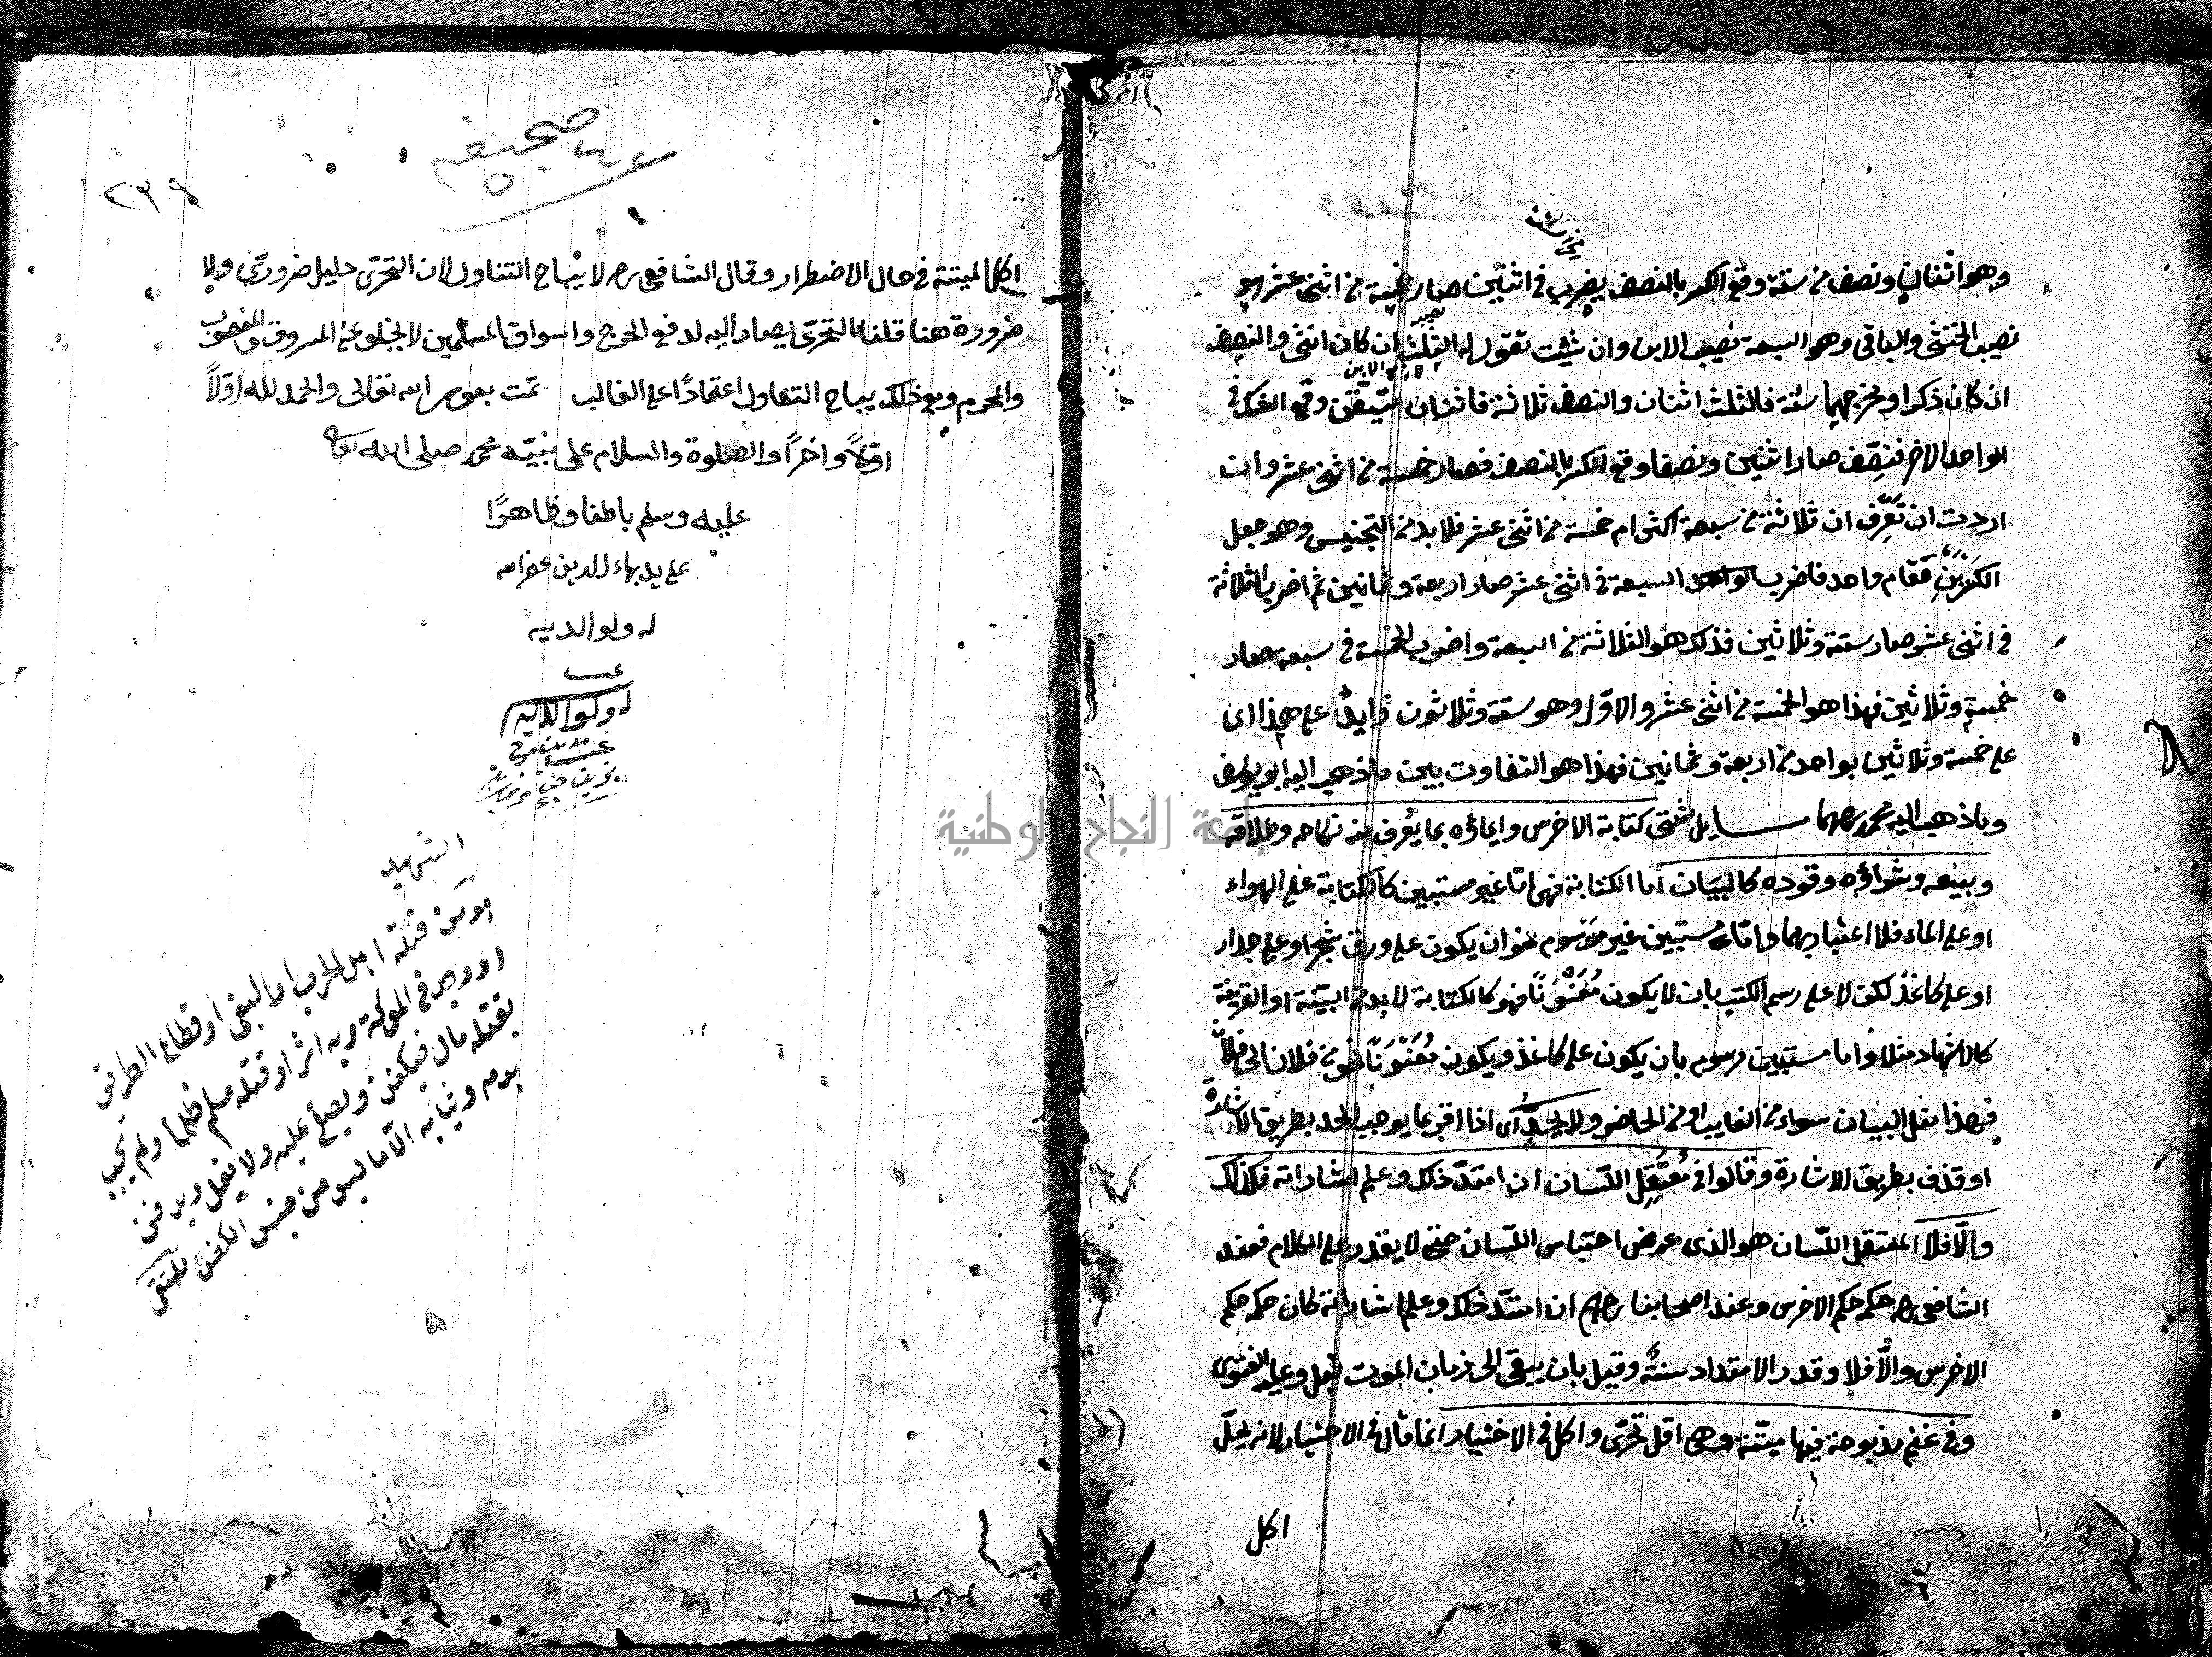 من ستة
وهو اثنان ونصف من ستة وقع الكسر بالنصف يضرب في اثنين صار خمسة من اثنى عشر هو
نصيب الخنثى والباقى وهو السبعة نصيب الابن وان شئت تقول له الثلث ان كان انثى والنصف
ان كان ذكرا ومخرجهما ستة فالثلث اثنان والنصف ثلاثة فاثنان متيقن وقع الشك في
الواحد الاخر فنصف صار اثنين ونصفا وقع الكسر بالنصف فصار خمسة من اثنى عشر وان
اردت ان تعرف ان ثلاثة من سبعة اكثر ام خمسة من اثنى عشر فلا بد من التجنيس وهو جعل
الكسرين من مقام واحد فاضرب السبعة في اثنى عشر صار اربعة وثمانين ثم اضرب الثلاثة
في اثنى عشر صار ستة وثلاثين فذلك هو الثلاثة من السبعة واضرب الخمسة في سبعة صار
خمسة وثلاثين فهذا هو الخمسة من اثنى عشر والاول وهو ستة وثلاثون زايد على هذا اى
على خمسة وثلاثين بواحد من اربعة وثمانين فهذا هو التفاوت بين ما ذهب اليه ابو يوسف
وما ذهب اليه محمد رحمهما مسايل شتى كتابة الاخرس وايماؤه بما يعرف منه نكاحه وطلاقه
وبيعه وشراؤه وقوده كالبيان اما الكتابة فهى اما غير مستبين كالكتابة على الهواء
او على الماء فلا اعتبار بهما واما مستبين غير مرسوم نحو ان يكون على ورق شجر او على جدار
او على كاغذ لكن لا على رسم الكتب بان لا يكون معنونا فهو كالكتابة لا بد من البينة او القرينة
كالاشهاد مثلا واما مستبين مرسوم بان يكون على كاغذ ويكون معنونا نحو من فلان الى فلان
فهذا مثل البيان سواء من الغايب او من الحاضر ولا يحد اى اذا اقر بما يوجب الحد بطريق الاشارة
او قذف بطريق الاشارة وقالوا في معتقل اللسان ان امتد ذلك وعلم اشاراته فكذلك
والا فلا المعتقل اللسان هو الذى عرض احتباس اللسان حتى لا يقدر على الكلام فعند
الشافعى رحمه حكمه حكم الاخرس وعند اصحابنا رحمهم ان امتد ذلك وعلم اشاراته كان حكمه حكم
الاخرس والا فلا وقدر الامتداد سنة وقيل بان يبقى الى زمان الموت قيل وعليه الفتوى
وفى غنم مذبوحة فيها ميتة وهى اقل تحرى واكل في الاختيار انما قال في الاختيار لانه يحل
اكل
صحيفه
٢٣٩
اكل الميتة في حال الاضطرار وقال الشافعى رحمه لا يباح التناول لان التحرى دليل ضرورى ولا
ضرورة هنا قلنا التحرى يصار اليه لدفع الحرج واسواق المسلمين لا يخلو عن المسروق والمغصوب
والمحرم ومع ذلك يباح التناول اعتمادا على الغالب تمت بعون الله تعالى والحمد لله اولا
اولا واخرا والصلوة والسلام على نبيه محمد صلى الله تعالى
عليه وسلم باطنا وظاهرا
على يد بهاء الدين غفر الله
له ولوالديه
له ولوالديه
الشهيد
هو من قتله اهل الحرب او البغى او قطاع الطريق
او وجد في المعركة وبه اثر او قتله مسلم ظلما ولم يجب
بقتله مال فيكفن ويصلى عليه ولا يغسل ويدفن
بدمه وثيابه الا ما ليس من جنس الكفن ملتقى
جامعة النجاح الوطنية